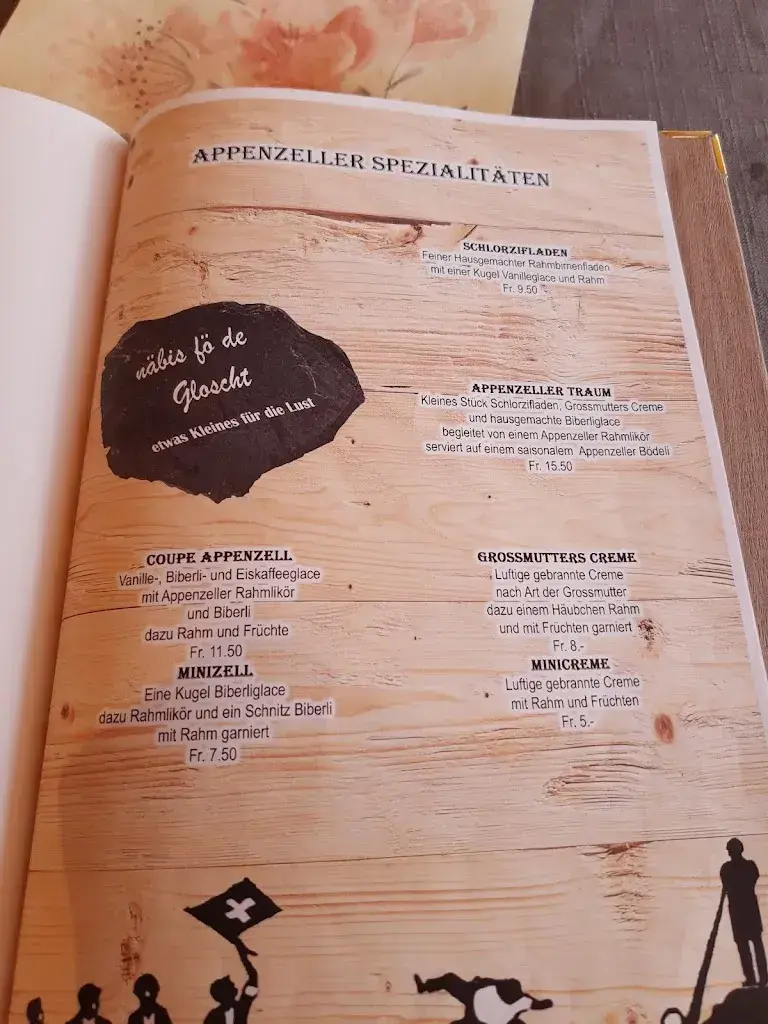 APPENZELLER SPEZIALITÄTEN
SCHLORZIFLADEN
Feiner Hausgemachter Rahmbirnenfladen
mit einer Kugel Vanilleglace und Rahm
Fr. 9.50
näbis fö de
Gloscht
etwas Kleines für die Lust
APPENZELLER TRAUM
Kleines Stück Schlorzifladen, Grossmutters Creme
und hausgemachte Biberliglace
begleitet von einem Appenzeller Rahmlikör
serviert auf einem saisonalem Appenzeller Bödeli
Fr. 15.50
COUPE APPENZELL
Vanille-, Biberli- und Eiskaffeeglace
mit Appenzeller Rahmlikör
und Biberli
dazu Rahm und Früchte
Fr. 11.50
MINIZELL
Eine Kugel Biberliglace
dazu Rahmlikör und ein Schnitz Biberli
mit Rahm garniert
Fr. 7.50
GROSSMUTTERS CREME
Luftige gebrannte Creme
nach Art der Grossmutter
dazu einem Häubchen Rahm
und mit Früchten garniert
Fr. 8.-
MINICREME
Luftige gebrannte Creme
mit Rahm und Früchten
Fr. 5.-